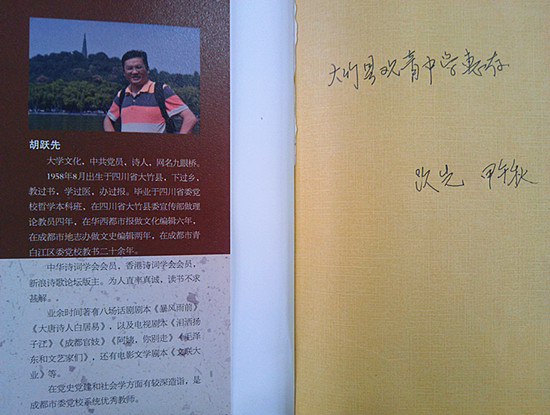 胡跃先
大学文化，中共党员，诗人，网名九眼桥。
1958年8月出生于四川省大竹县，下过乡，
教过书，学过医，办过报。毕业于四川省委党
校哲学本科班，在四川省大竹县委宣传部做理
论教员四年，在华西都市报做文化编辑六年，
在成都市地志办做文史编辑两年，在成都市青
白江区委党校教书二十余年。
中华诗词学会会员，香港诗词学会会员，
新浪诗歌论坛版主。为人直率真诚，读书不求
甚解。
业余时间著有八场话剧剧本《暴风雨前》
《大唐诗人白居易》，以及电视剧本《泪洒扬
子江》《成都官妓》《阿姊，你别走》《毛泽
东和文艺家们》，还有电影文学剧本《文联大
业》等。
在党史党建和社会学方面有较深造诣，是
成都市委党校系统优秀教师。
大竹县观音中学惠存
跃先 甲午秋